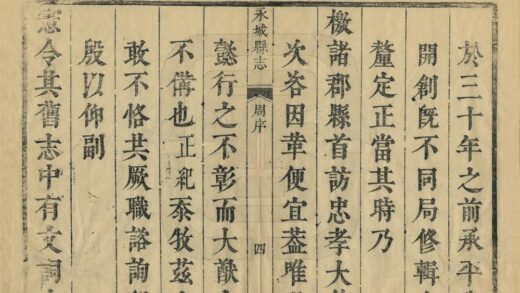 於三十年之前承平
開創旣不同局修輯
釐定正當其時乃
檄諸郡縣首訪忠孝大
次咨因革便宜葢唯
永城縣志
周序
四
懿行之不彰而大猷
不備也正紀忝牧茲
敢不恪共厥職諮詢
殷以仰副
憲令其舊志中有文詞